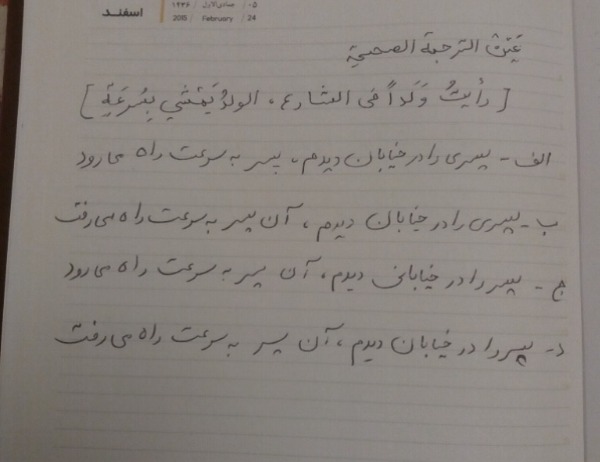 ۵- جمادی‌الاول / ۱۴۳۶
2015 / February / 24
اسفند
عَیِّنْ الترجمة الصحیحة
[ رأیتُ وَلَداً فی الشارع، الولدُ یَمْشي بِسُرعَةٍ ]
الف - پسری را در خیابان دیدم، پسر به سرعت راه می‌رود
ب - پسری را در خیابان دیدم، آن پسر به سرعت راه می‌رفت
ج - پسر را در خیابانی دیدم، آن پسر به سرعت راه می‌رود
د - پسر را در خیابان دیدم، آن پسر به سرعت راه می‌رفت